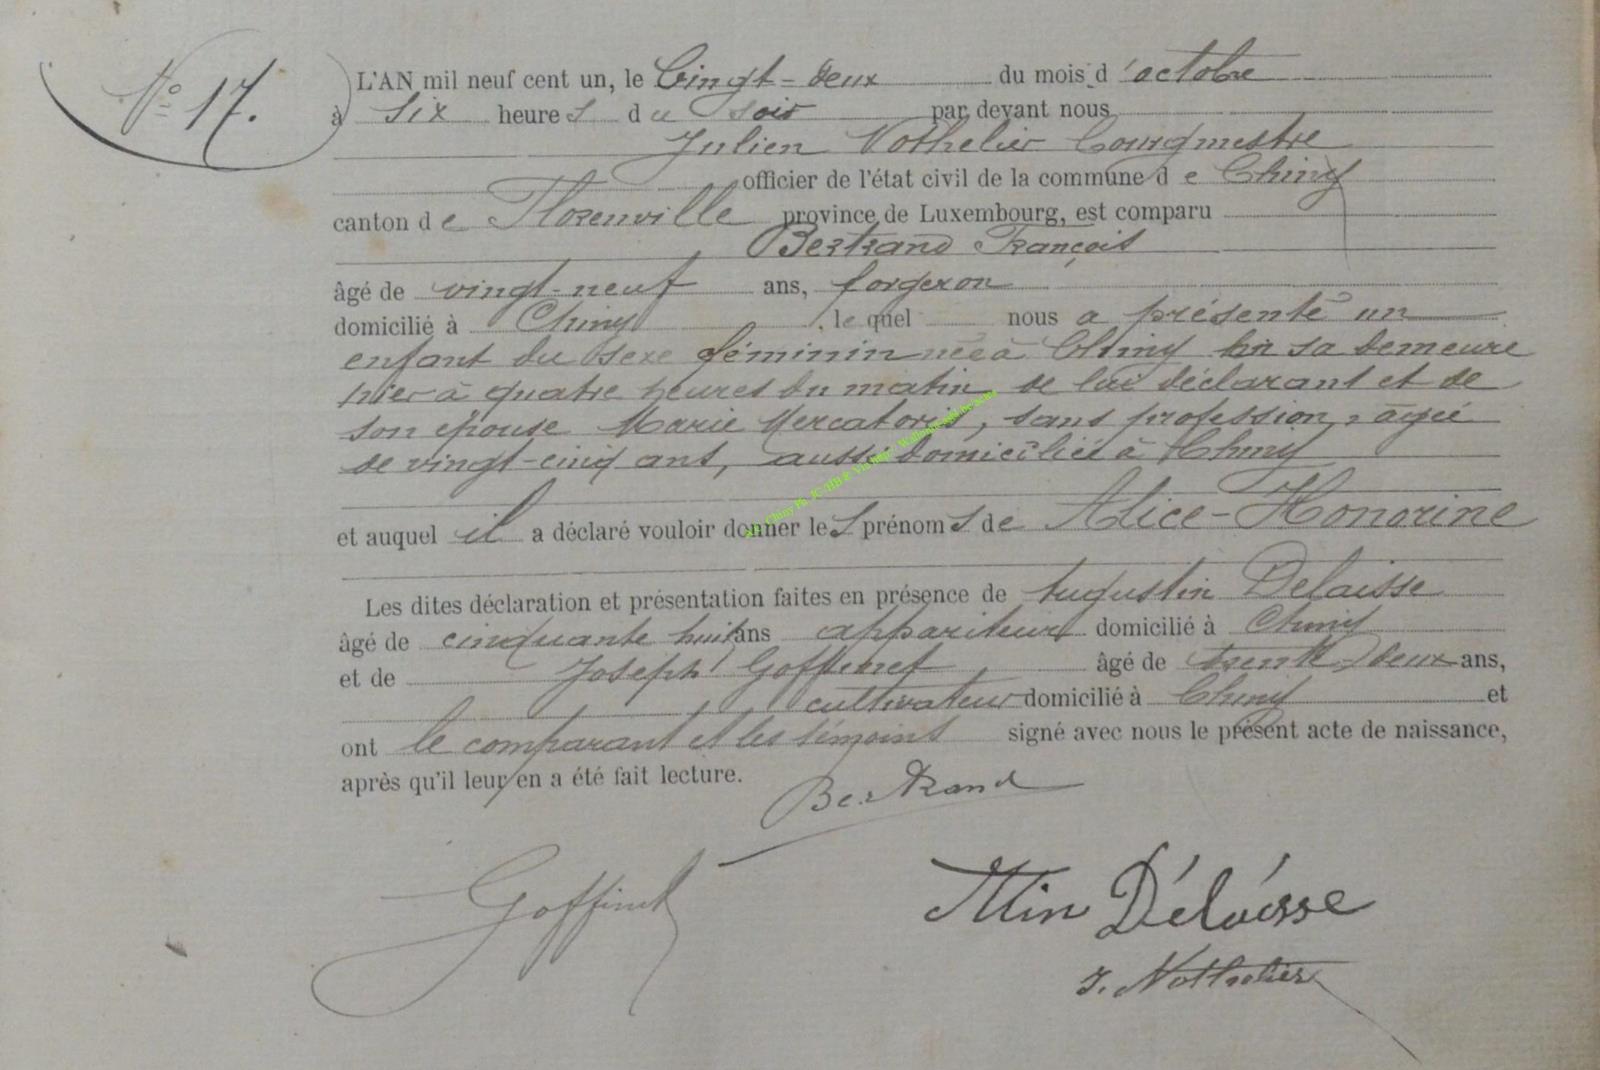 N° 17.
L'AN mil neuf cent un, le Vingt-deux du mois d'octobre
à six heures du soir par devant nous
Julien Nothelier Bourgmestre
officier de l'état civil de la commune de Chiny
canton de Florenville province de Luxembourg, est comparu
Bertrand François
âgé de vingt-neuf ans, forgeron
domicilié à Chiny, lequel nous a présenté un
enfant du sexe féminin née à Chiny en sa demeure
hier à quatre heures du matin de lui déclarant et de
son épouse Marie Mercatoris, sans profession, âgée
de vingt-cinq ans, aussi domiciliés à Chiny
et auquel il a déclaré vouloir donner les prénoms de Alice-Honorine
Les dites déclaration et présentation faites en présence de Augustin Delaisse
âgé de cinquante huit ans appariteur domicilié à Chiny
et de Joseph Goffinet âgé de trente deux ans,
cultivateur domicilié à Chiny et
ont le comparant et les témoins signé avec nous le présent acte de naissance,
après qu'il leur en a été fait lecture.
Bertrand
Goffinet
Délaisse
J. Nothelier